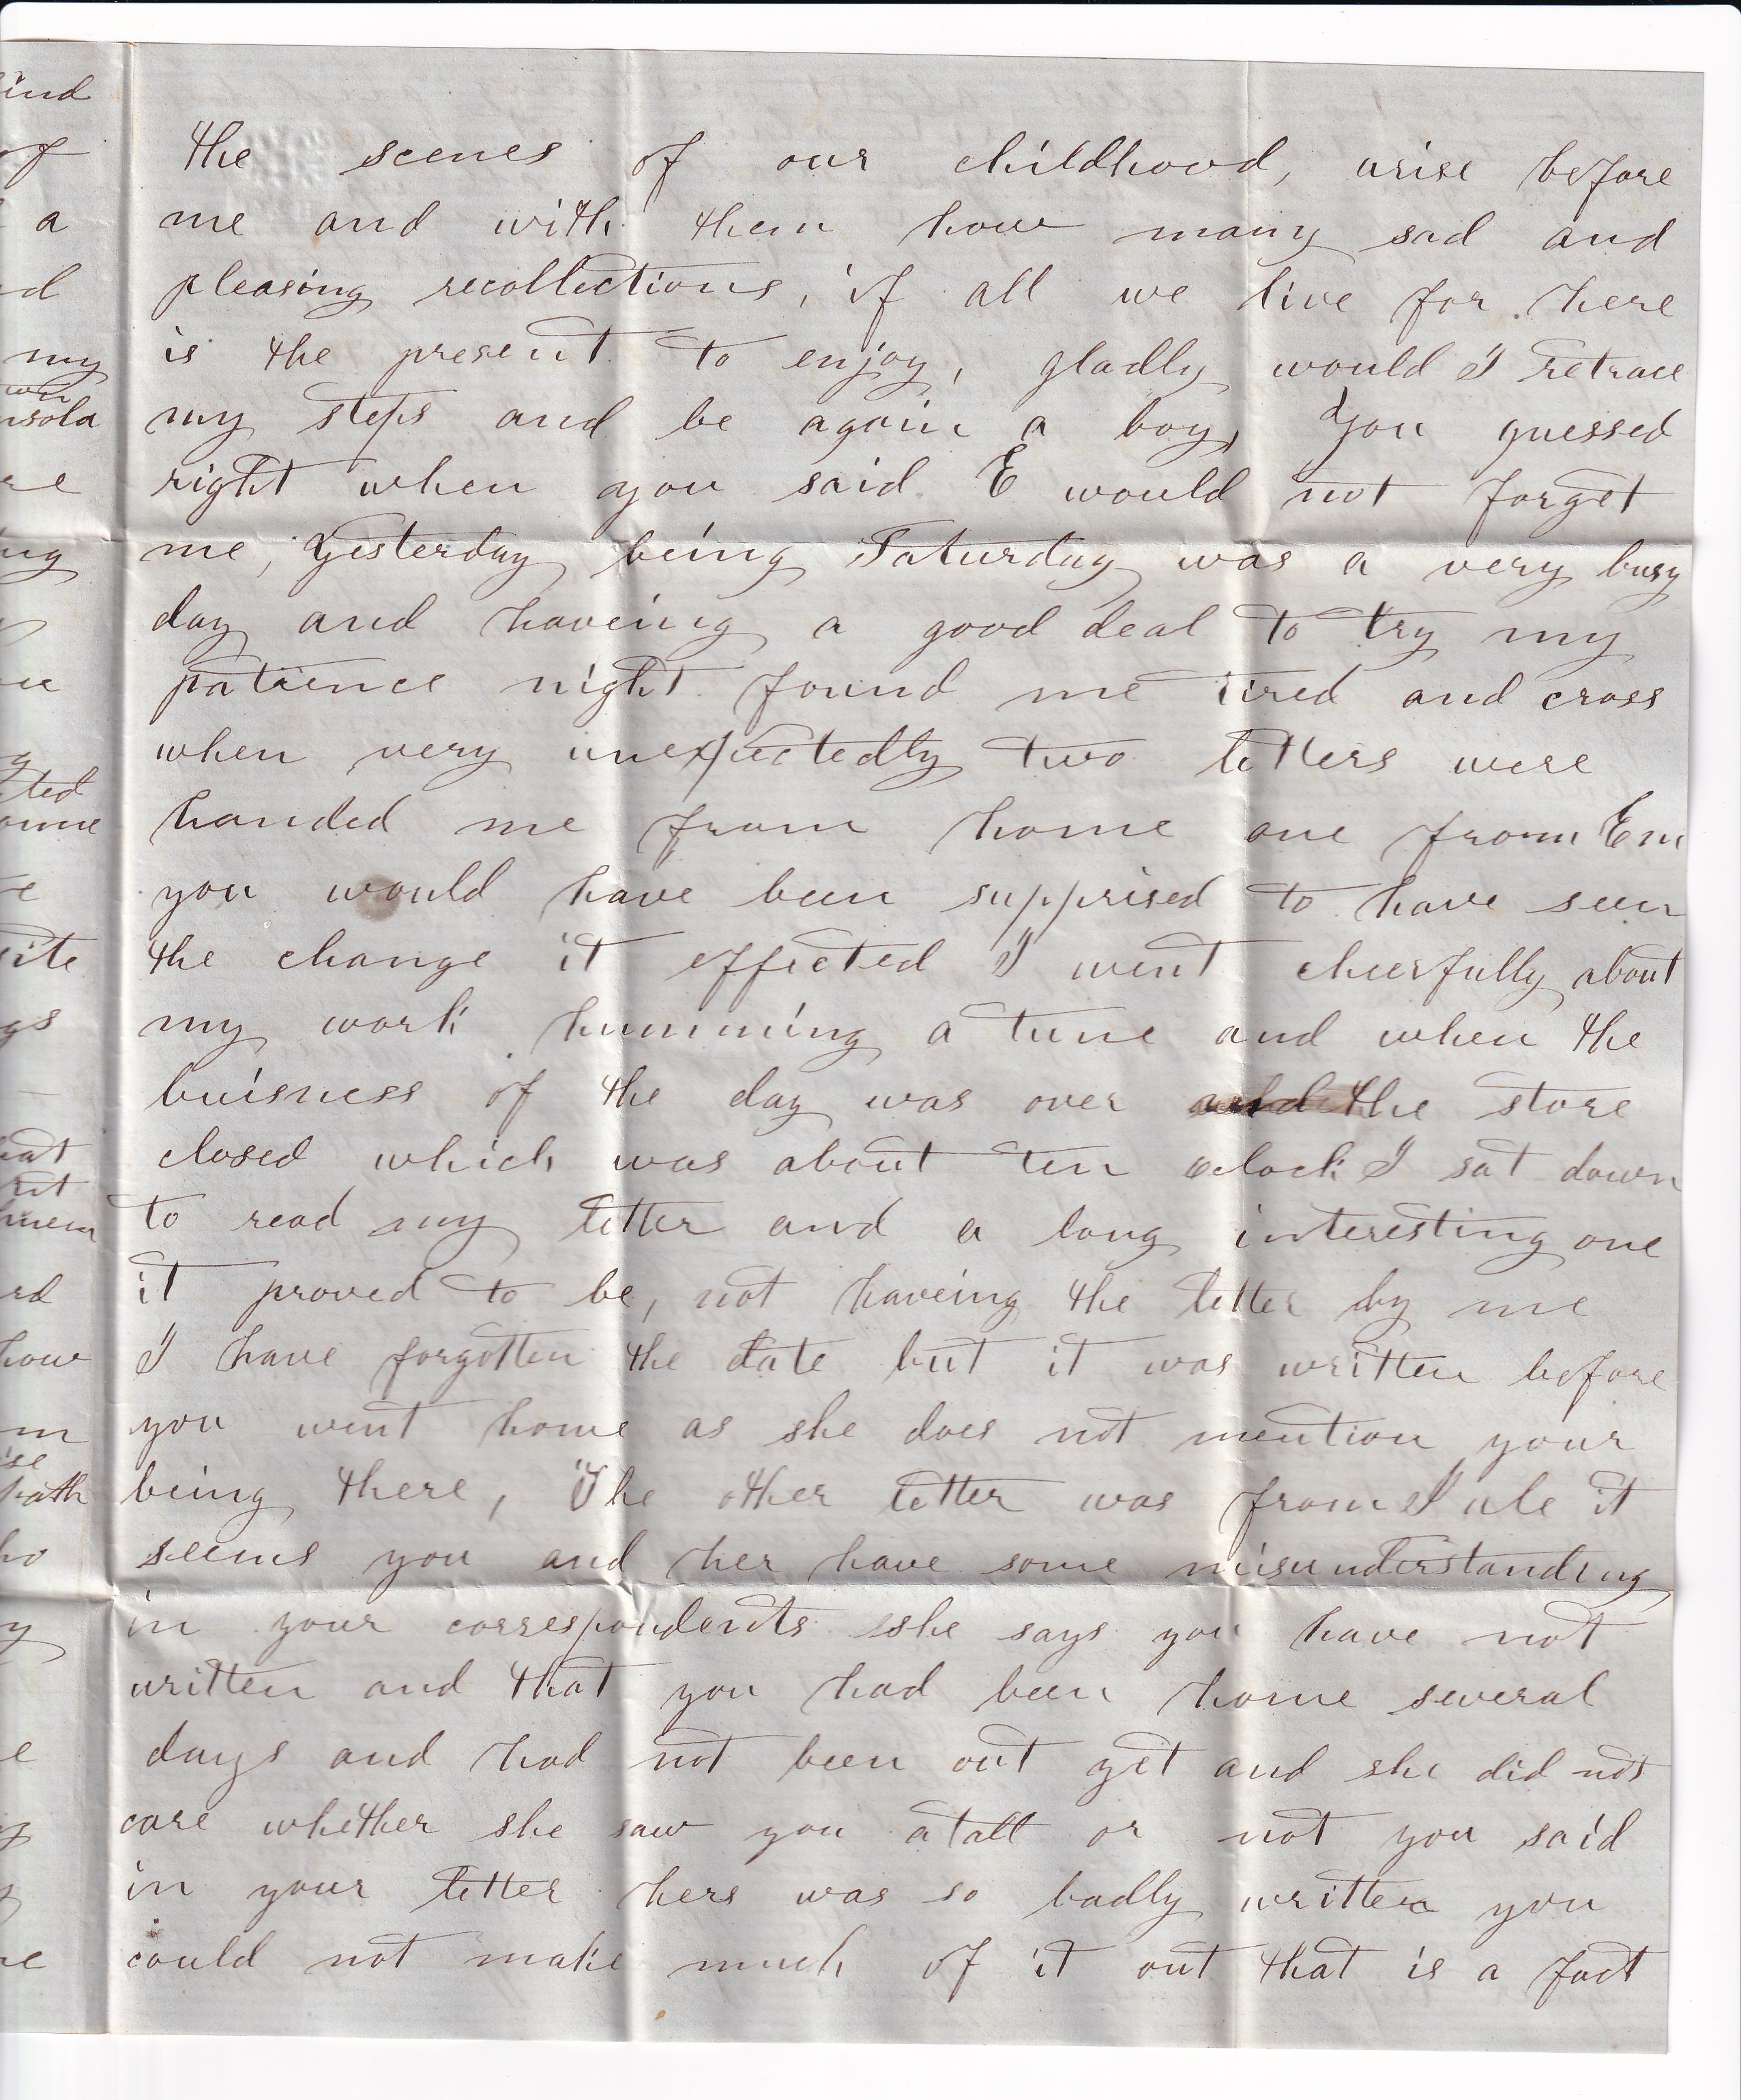 the scenes of our childhood, arise before
me and with them how many sad and
pleasing recollections, if all we live for here
is the present to enjoy, gladly would I retrace
my steps and be again a boy, You guessed
right when you said E would not forget
me, Yesterday being Saturday was a very busy
day and haveing a good deal to try my
patience night found me tired and cross
when very unexpectedly two letters were
handed me from home one from Em
you would have been supprised to have seen
the change it effected I went cheerfully about
my work humming a tune and when the
buisness of the day was over the store
closed which was about ten oclock I sat down
to read my letter and a long interesting one
it proved to be, not haveing the letter by me
I have forgotten the date but it was written before
you went home as she does not mention your
being there, The other letter was from Jule it
seems you and her have some misunderstanding
in your correspondents she says you have not
written and that you had been home several
days and had not been out yet and she did not
care whether she saw you atall or not you said
in your letter hers was so badly written you
could not make much of it out that is a fact